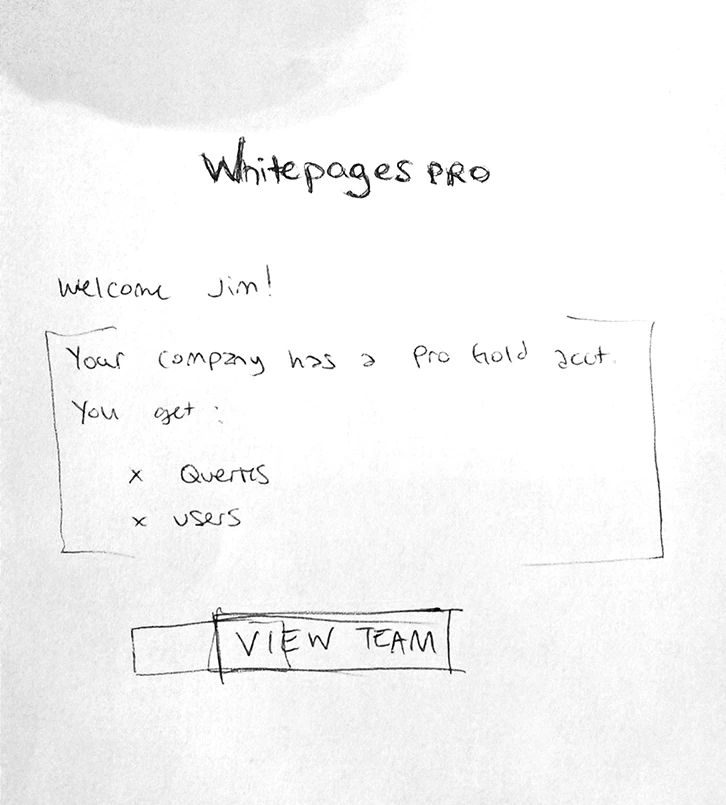 Whitepages PRO
Welcome Jim!
Your company has a Pro Gold acct.
You get:
x Queries
x users
VIEW TEAM